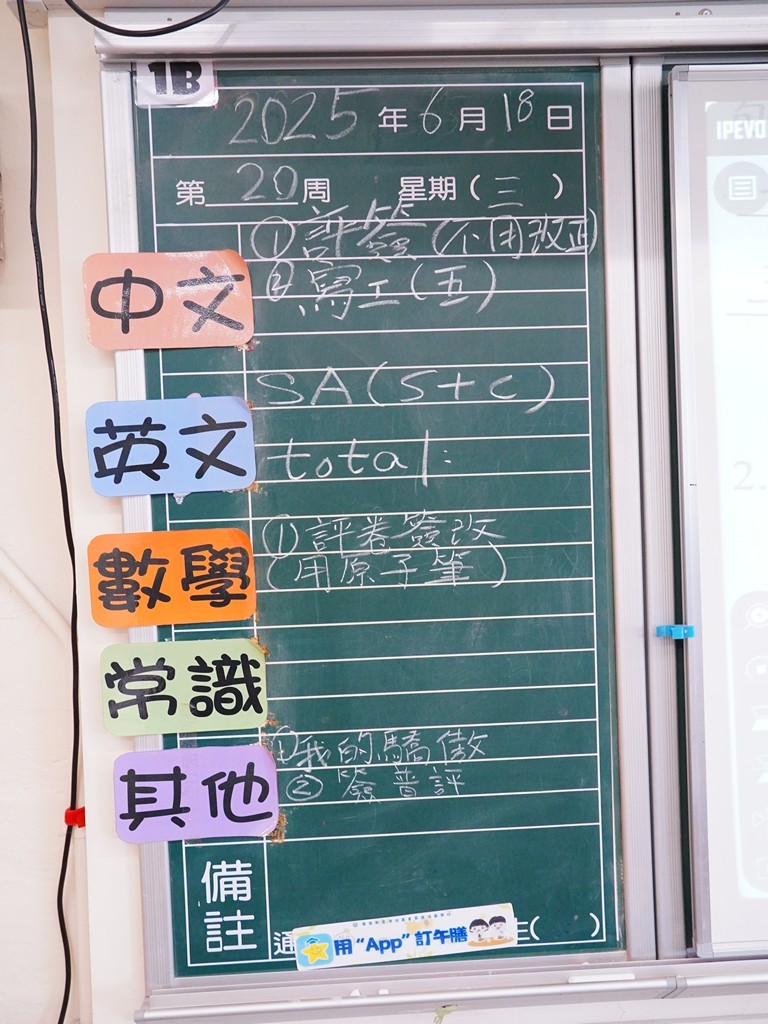 1B
2025年6月18日
第 29 周 星期(三)
中文
①評簽(不用改正)
②寫工(五)
英文
SA(S+C)
total:
數學
①評卷簽改
(用原子筆)
常識
其他
①我的驕傲
②簽普評
備註
通
用“App”訂午膳
(  )
IPEVO
2.